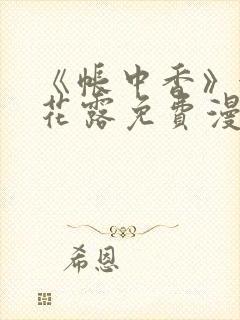 《帐中香》
花露免費漫
希恩